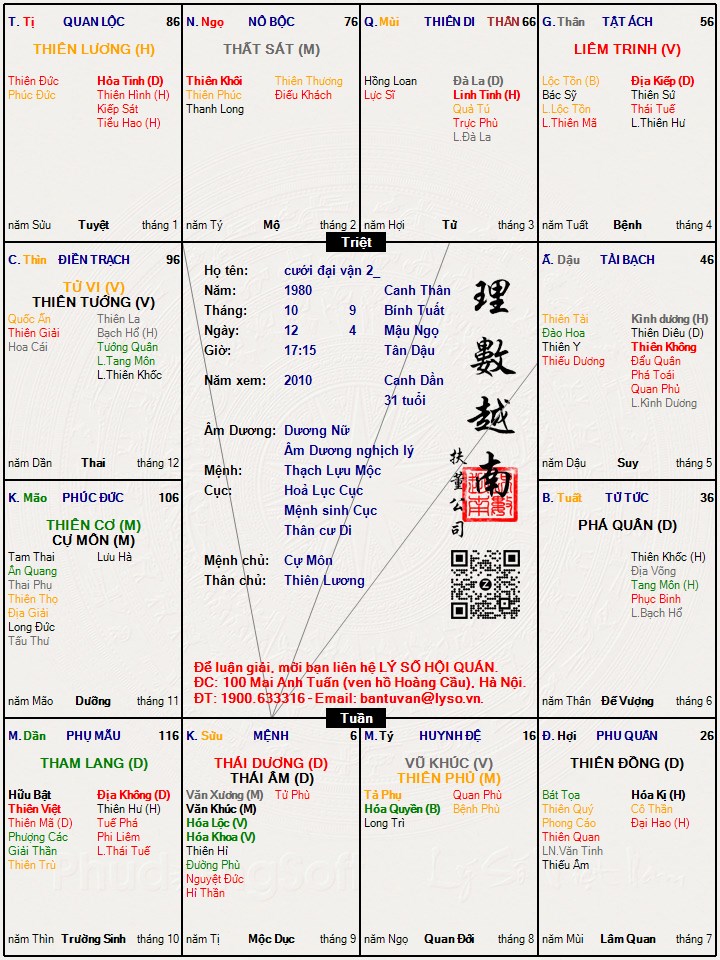 T. Tị QUAN LỘC 86
THIÊN LƯƠNG (H)
Thiên Đức
Phúc Đức
Hỏa Tinh (D)
Thiên Hình (H)
Kiếp Sát
Tiểu Hao (H)
năm Sửu Tuyệt tháng 1
N. Ngọ NÔ BỘC 76
THẤT SÁT (M)
Thiên Khôi
Thiên Phúc
Thanh Long
Thiên Thương
Điếu Khách
năm Tý Mộ tháng 2
Q. Mùi THIÊN DI THÂN 66
Hồng Loan
Lực Sĩ
Đà La (D)
Linh Tinh (H)
Quả Tú
Trực Phù
L.Đà La
năm Hợi Tử tháng 3
G. Thân TẬT ÁCH 56
LIÊM TRINH (V)
Lộc Tồn (B)
Bác Sỹ
L.Lộc Tồn
L.Thiên Mã
Địa Kiếp (D)
Thiên Sứ
Thái Tuế
L.Thiên Hư
năm Tuất Bệnh tháng 4
C. Thìn ĐIỀN TRẠCH 96
TỬ VI (V)
THIÊN TƯỚNG (V)
Quốc Ấn
Thiên Giải
Hoa Cái
Thiên La
Bạch Hổ (H)
Tướng Quân
L.Tang Môn
L.Thiên Khốc
năm Dần Thai tháng 12
Triệt
Họ tên: cưới đại vận 2_
Năm: 1980 Canh Thân
Tháng: 10 9 Bính Tuất
Ngày: 12 4 Mậu Ngọ
Giờ: 17:15 Tân Dậu
Năm xem: 2010 Canh Dần
31 tuổi
Âm Dương: Dương Nữ
Âm Dương nghịch lý
Mệnh: Thạch Lựu Mộc
Cục: Hoả Lục Cục
Mệnh sinh Cục
Thân cư Di
Mệnh chủ: Cự Môn
Thân chủ: Thiên Lương
理數越南
扶董公司
Để luận giải, mời bạn liên hệ LÝ SỐ HỘI QUÁN.
ĐC: 100 Mai Anh Tuấn (ven hồ Hoàng Cầu), Hà Nội.
ĐT: 1900.633316 - Email: bantuvan@lyso.vn.
Tuần
Ấ. Dậu TÀI BẠCH 46
Thiên Tài
Đào Hoa
Thiên Y
Thiếu Dương
Kình dương (H)
Thiên Diêu (D)
Thiên Không
Đẩu Quân
Phá Toái
Quan Phủ
L.Kình Dương
năm Dậu Suy tháng 5
K. Mão PHÚC ĐỨC 106
THIÊN CƠ (M)
CỰ MÔN (M)
Tam Thai
Ân Quang
Thai Phụ
Thiên Thọ
Địa Giải
Long Đức
Tấu Thư
Lưu Hà
năm Mão Dưỡng tháng 11
B. Tuất TỬ TỨC 36
PHÁ QUÂN (D)
Thiên Khốc (H)
Địa Võng
Tang Môn (H)
Phục Binh
L.Bạch Hổ
năm Thân Đế Vượng tháng 6
M. Dần PHỤ MẪU 116
THAM LANG (D)
Hữu Bật
Thiên Việt
Thiên Mã (D)
Phượng Các
Giải Thần
Thiên Trù
Địa Không (D)
Thiên Hư (H)
Tuế Phá
Phi Liêm
L.Thái Tuế
năm Thìn Trường Sinh tháng 10
K. Sửu MỆNH 6
THÁI DƯƠNG (D)
THÁI ÂM (D)
Văn Xương (M)
Văn Khúc (M)
Hóa Lộc (V)
Hóa Khoa (V)
Thiên Hỉ
Đường Phù
Nguyệt Đức
Hỉ Thần
Tử Phù
năm Tị Mộc Dục tháng 9
M. Tý HUYNH ĐỆ 16
VŨ KHÚC (V)
THIÊN PHỦ (M)
Tả Phụ
Hóa Quyền (B)
Long Trì
Quan Phù
Bệnh Phù
năm Ngọ Quan Đới tháng 8
Đ. Hợi PHU QUÂN 26
THIÊN ĐỒNG (D)
Bát Tọa
Thiên Quý
Phong Cáo
Thiên Quan
LN.Văn Tinh
Thiếu Âm
Hóa Kị (H)
Cô Thần
Đại Hao (H)
năm Mùi Lâm Quan tháng 7